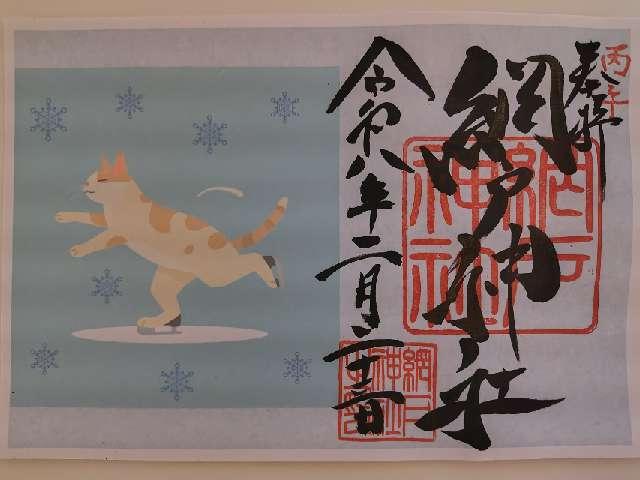 丙午
奉拝
網戸神社
網戸神社
令和八年二月二十二日
網戸
神社